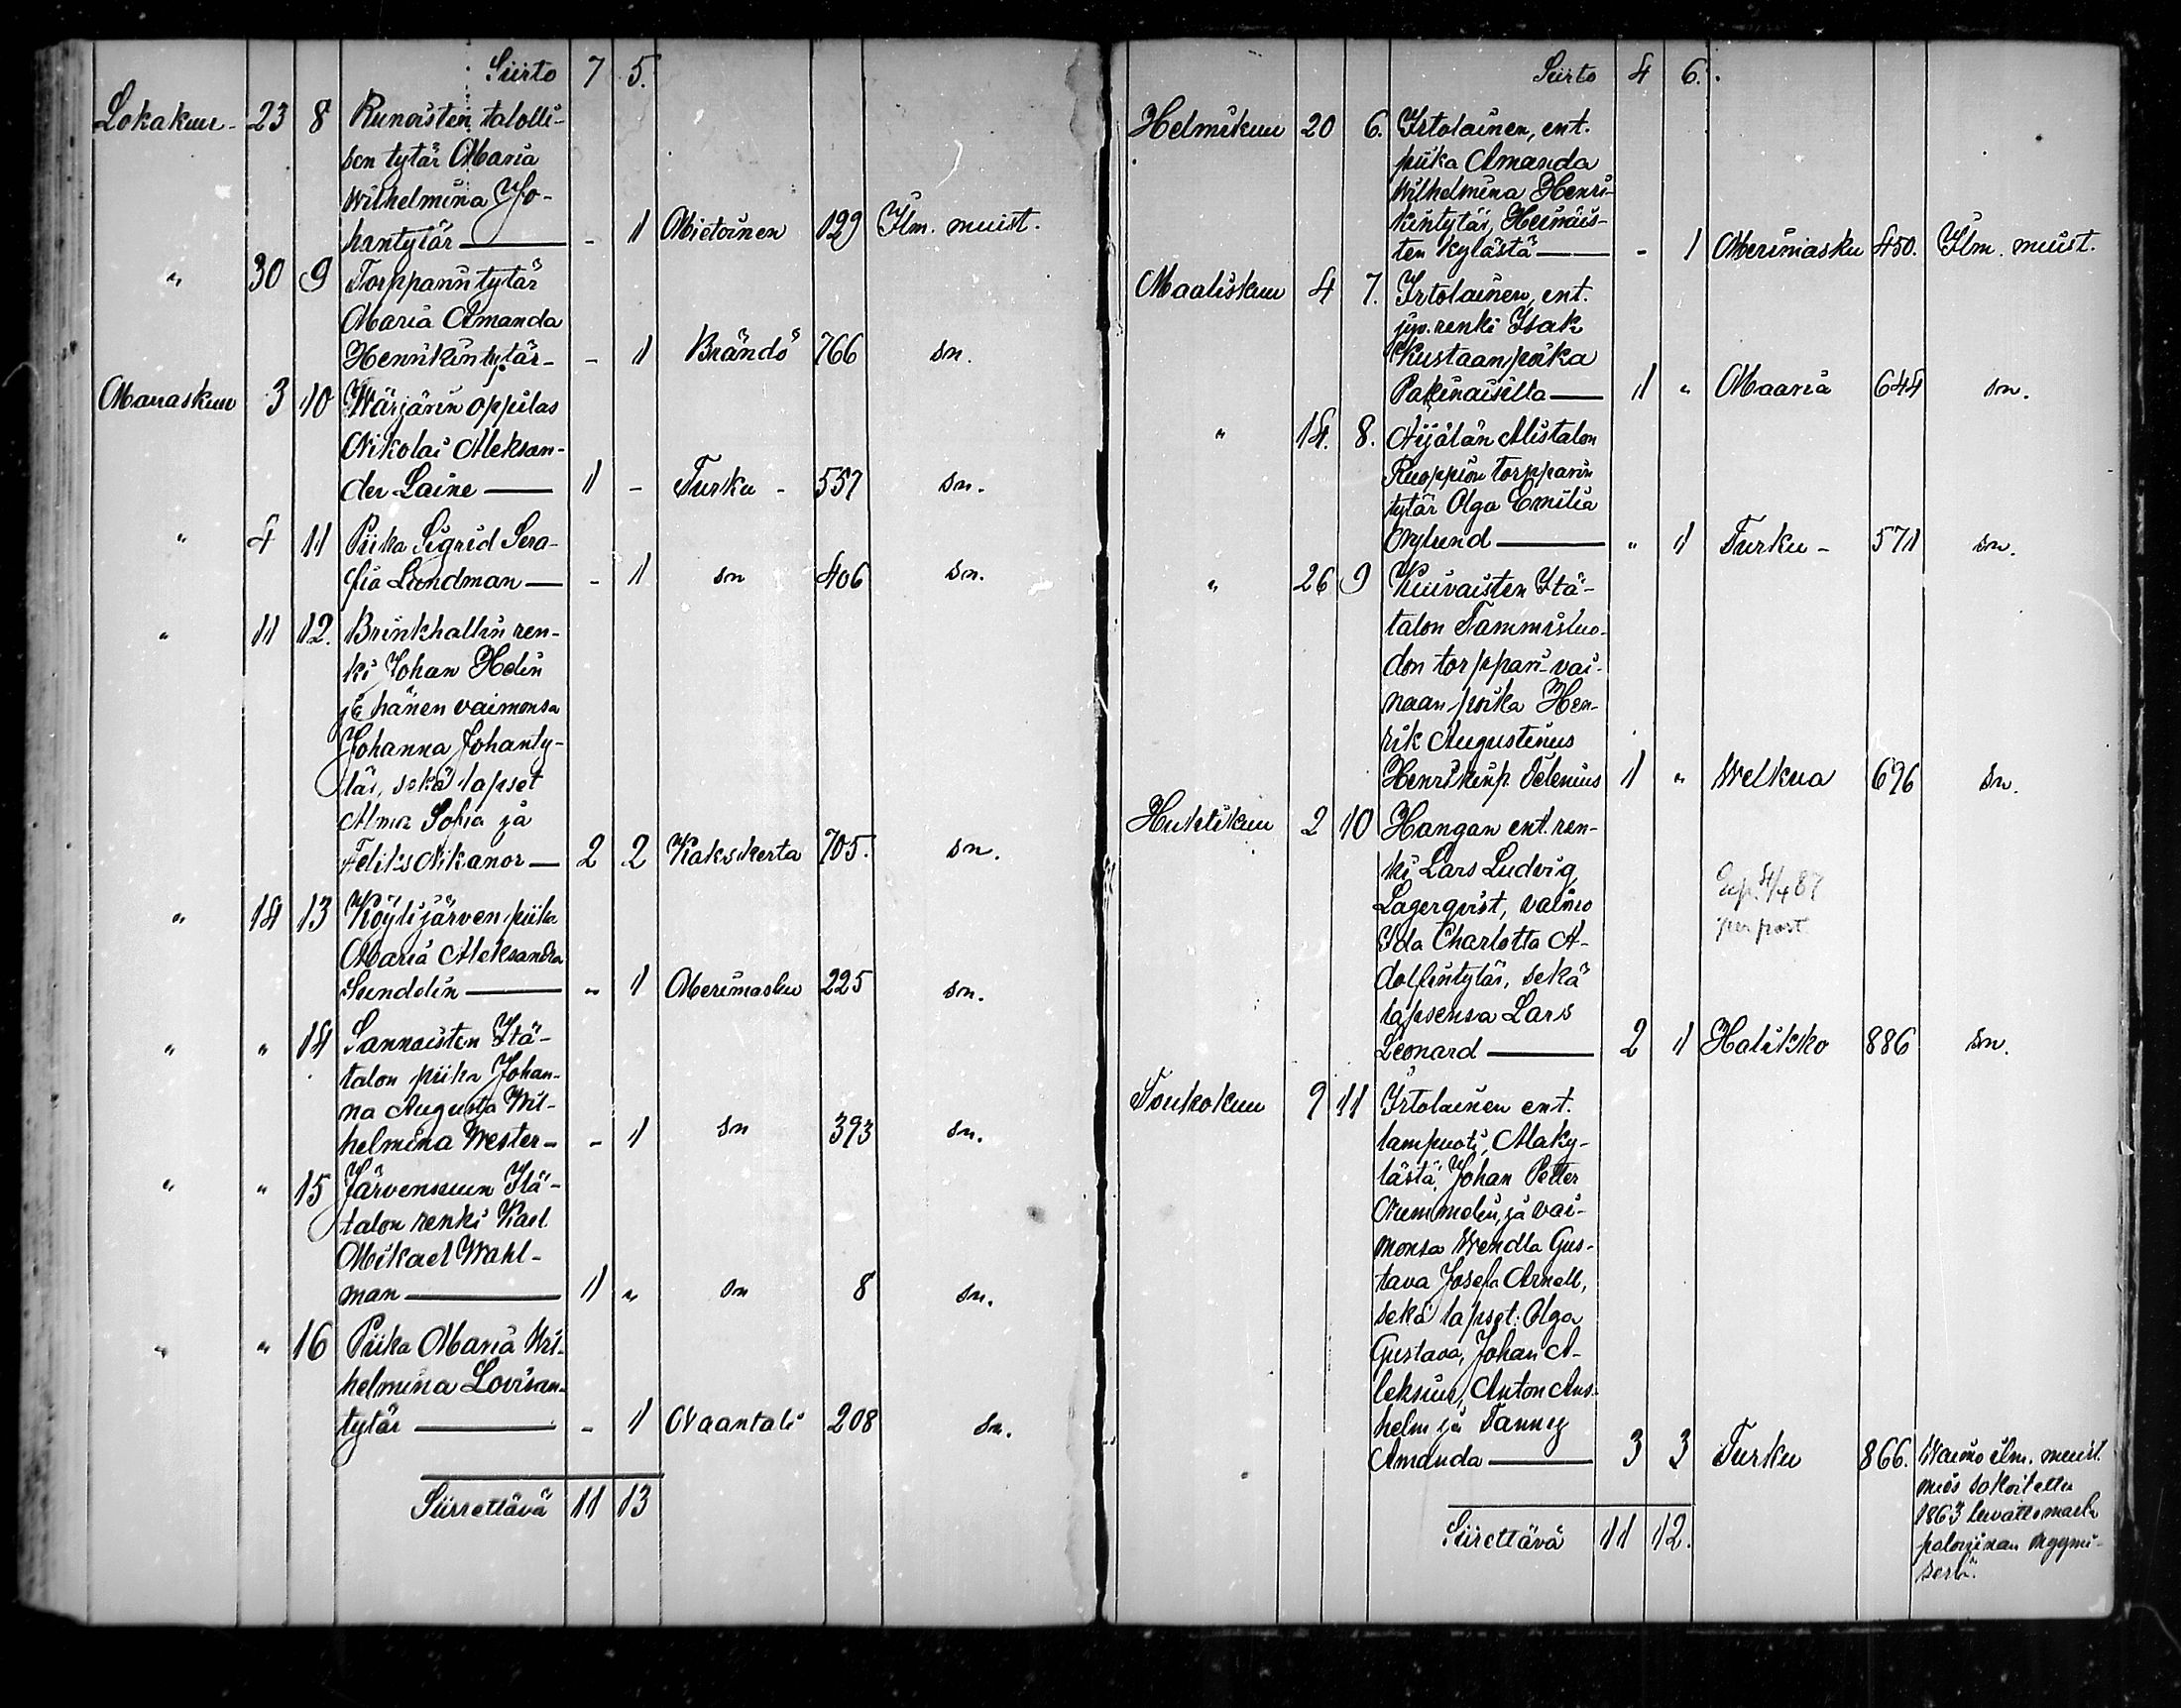 Siirto 7 5.
Lokakuu - 23 8 Runoisten talolli-
sen tytär Maria
Wilhelmina Jo-
hantytär — - 1 Mietoinen 129 Ilm. muist.
" 30 9 Torpparin tytär
Maria Amanda
Henrikintytär - - 1 Brändö 766 sn.
Marraskuu 3 10 Wärjärin oppilas
Nikolai Aleksan-
der Laine — 1 - Turku - 557 sn.
" 4 11 Piika Sigrid Sera-
fia Lundman — - 1 sn 406 sn.
" 11 12. Brinkhallin ren-
ki Johan Helin
ja hänen vaimonsa
Johanna Johanty-
tär, sekä lapset
Alma Sofia ja
Feliks Nikanor — 2 2 Kakskerta 705. sn.
" 14 13 Köylijärven piika
Maria Aleksandra
Sundelin — " 1 Merimasku 225 sn.
" " 14 Sannaisten Itä-
talon piika Johan-
na Augusta Wil-
helmina Wester - - 1 sn 393 sn.
" " 15 Järvensuun Itä-
talon renki Karl
Mikael Wahl-
man — 1 " sn 8 sn.
" " 16 Piika Maria Wil-
helmina Lovisan-
tytär — - 1 Naantali 208 sn.
Siirrettävä 11 13
Siirto 4 6.
Helmikuu 20 6. Irtolainen, ent.
piika Amanda
Wilhelmina Henri-
kintytär, Heinäis-
ten kylästä — - 1 Merimasku 450. Ilm. muist.
Maaliskuu 4 7. Irtolainen, ent.
jyv. renki Isak
Kustaanpoika
Pakinaisilla — 1 " Maaria 644 sn.
" 14. 8. Äijälän Alistalon
Ruoppion torpparin
tytär Olga Emilia
Nylund — " 1 Turku - 571 sn.
" 26 9 Kuivaisten Itä-
talon Tammisluo-
don torppari-vai-
naan poika Hen-
rik Augustinus
Henrikinp. Selenius 1 " Welkua 696 sn.
Huhtikuu 2 10 Hangan ent. ren-
ki Lars Ludvig
Lagerqvist, vaimo
Ida Charlotta A-
dolfintytär, sekä
lapsensa Lars
Leonard — 2 1 Halikko 886 sn.
Exp. 4/4 87
per post
Toukokuu 9 11 Irtolainen ent.
lampuoti, Alaky-
lästä, Johan Petter
Nummelin, ja vai-
monsa Wendla Gus-
tava Josefa Arnell,
sekä lapset: Olga
Gustava, Johan A-
leksius, Anton Ans-
helm ja Fanny
Amanda — 3 3 Turku 866. Waimo ilm. muist.
mies sakoitettu
1863
paloviinan myymi-
sestä.
Siirettävä 11 12.